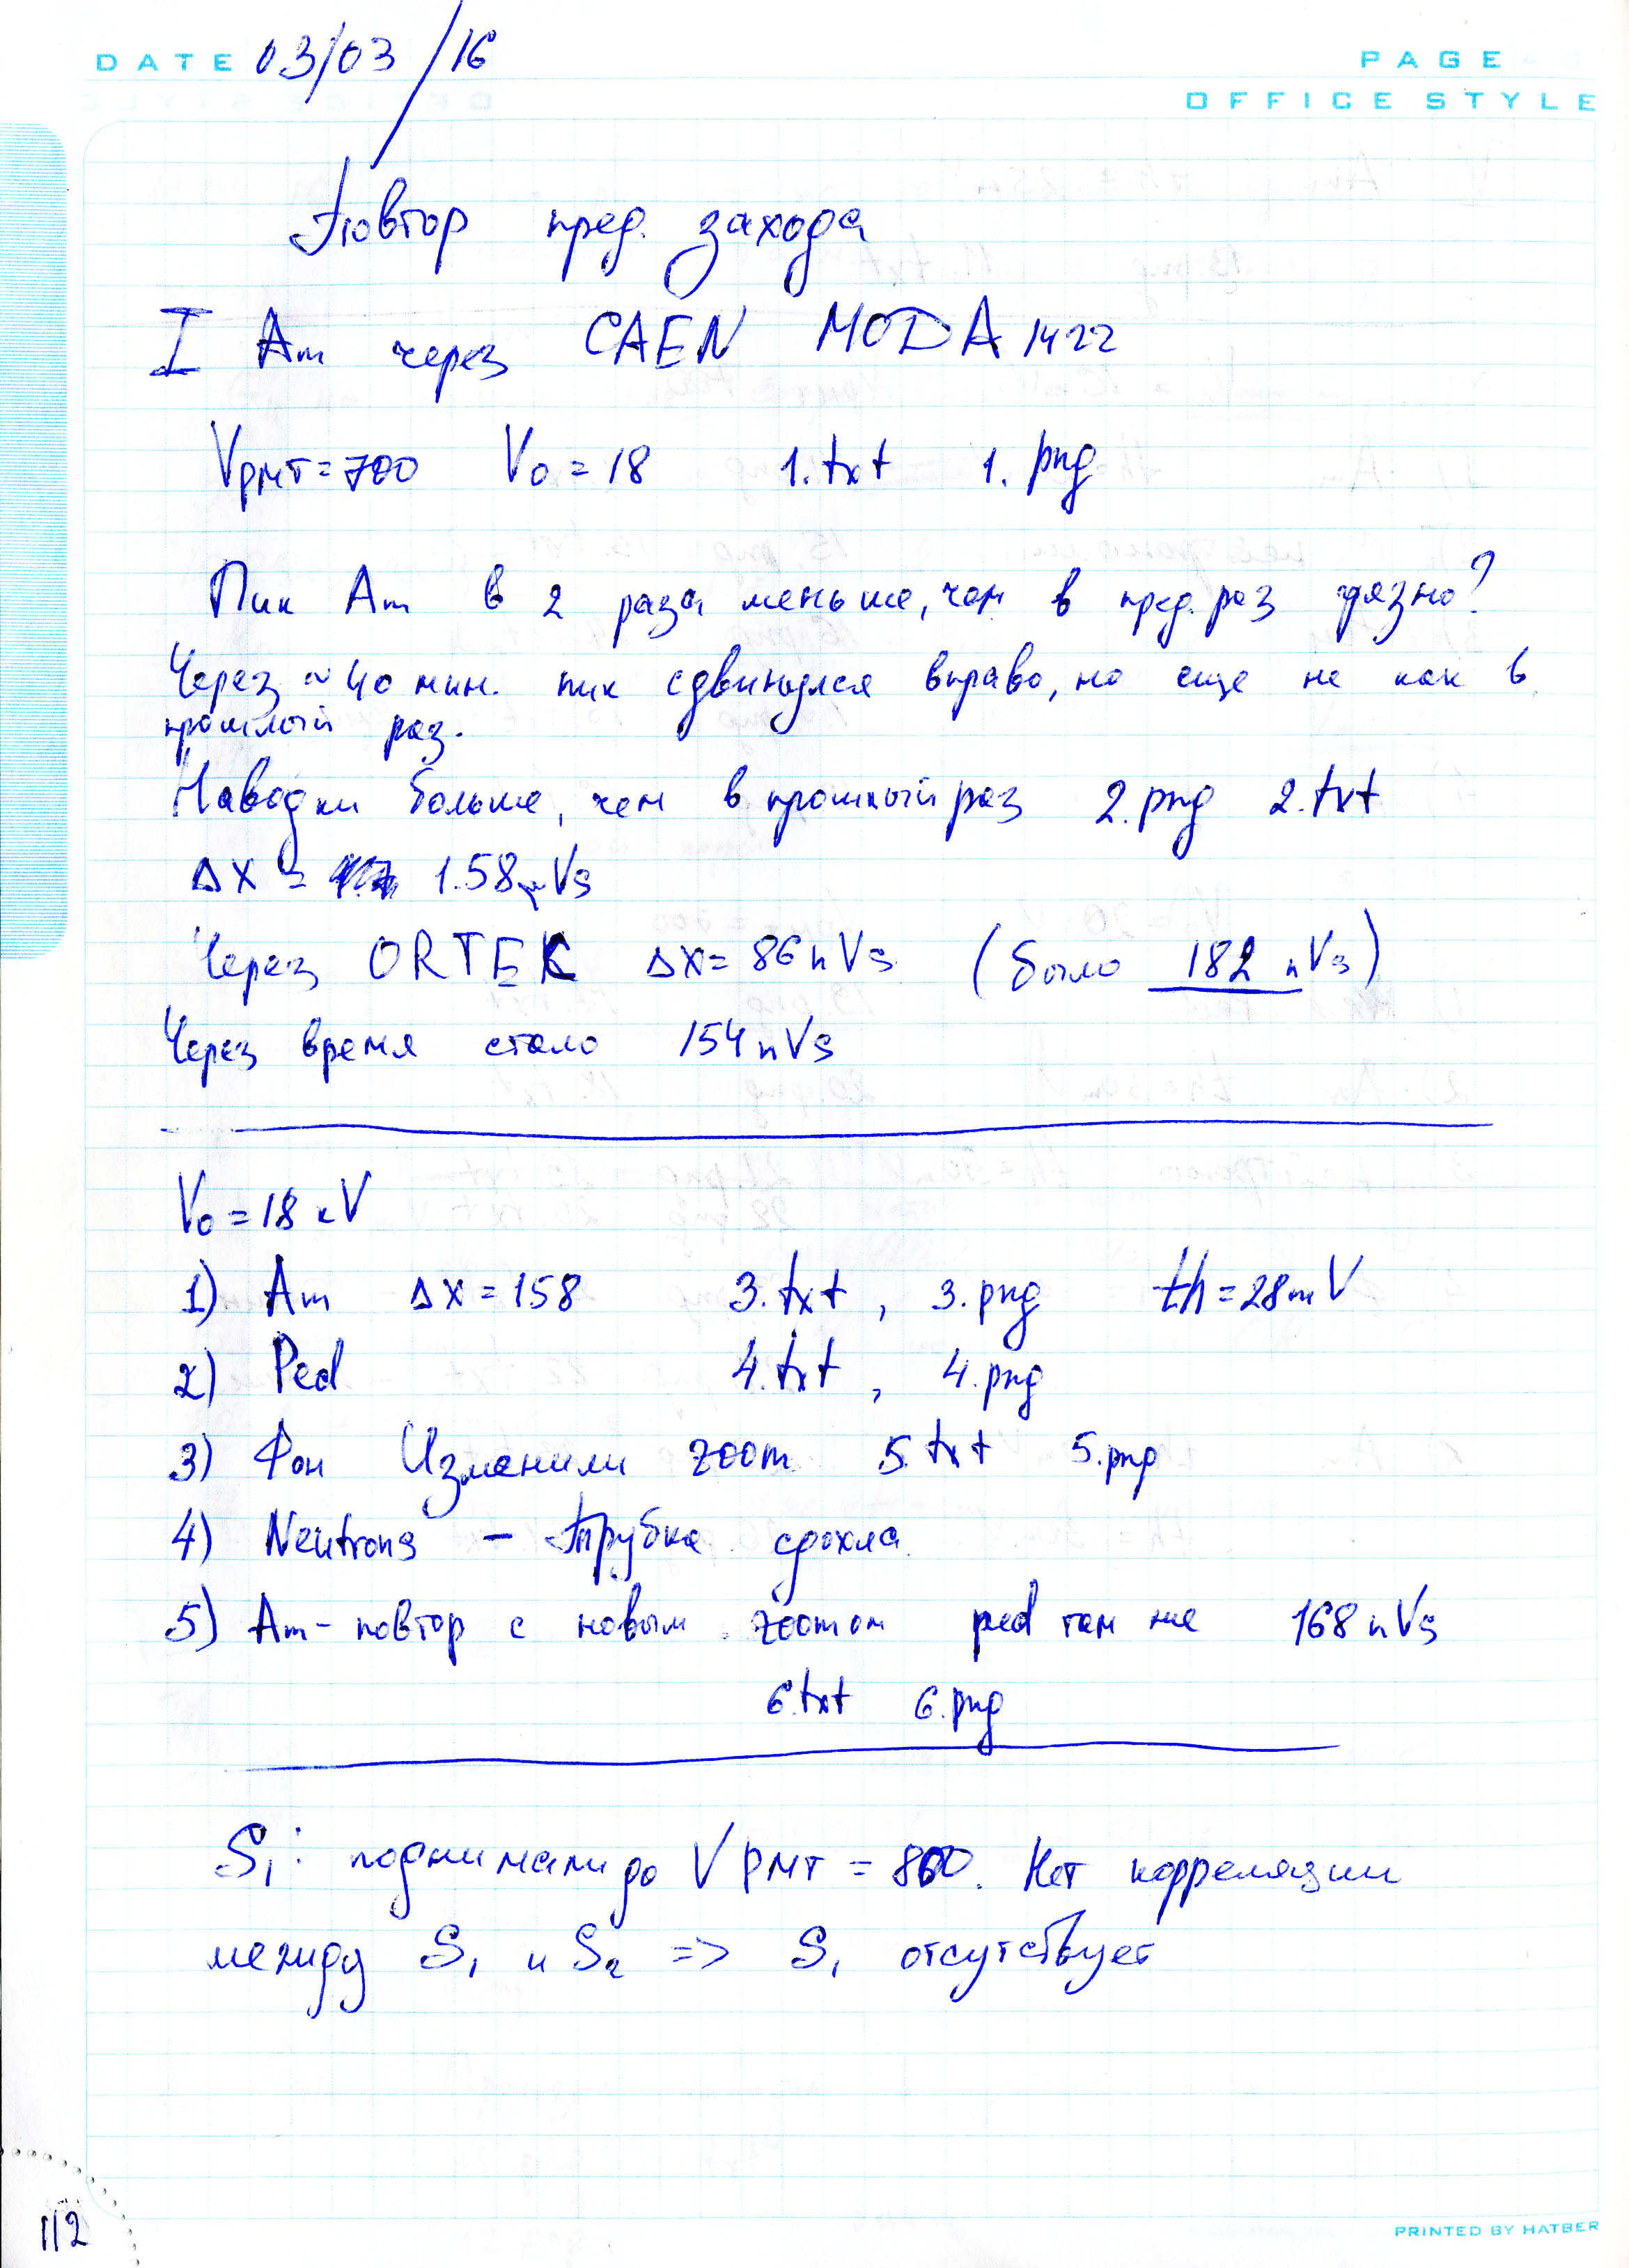 DATE 03/03/16
PAGE
OFFICE STYLE
Повтор пред. захода
I Am через CAEN MOD A1422
VPMT=700 V0=18 1.txt 1.png
Пик Am в 2 раза меньше, чем в пред. раз грязно?
Через ~40 мин. пик сдвинулся вправо, но еще не как в
прошлый раз.
Наводки больше, чем в прошлый раз 2.png 2.txt
ΔX = 1.58 Vs
Через ORTEC ΔX=86nVs (было 182 nVs)
Через время стало 154nVs
V0=18кV
1) Am ΔX=158 3.txt, 3.png th=28mV
2) Ped 4.txt, 4.png
3) Фон Изменили zoom 5.txt 5.png
4) Neutrons - Трубка сдохла
5) Am-повтор с новым zoomом ped там же 168nVs
6.txt 6.png
S1: поднимали до VPMT = 800. Нет корреляции
между S1 и S2 => S1 отсутствует
112
PRINTED BY HATBER